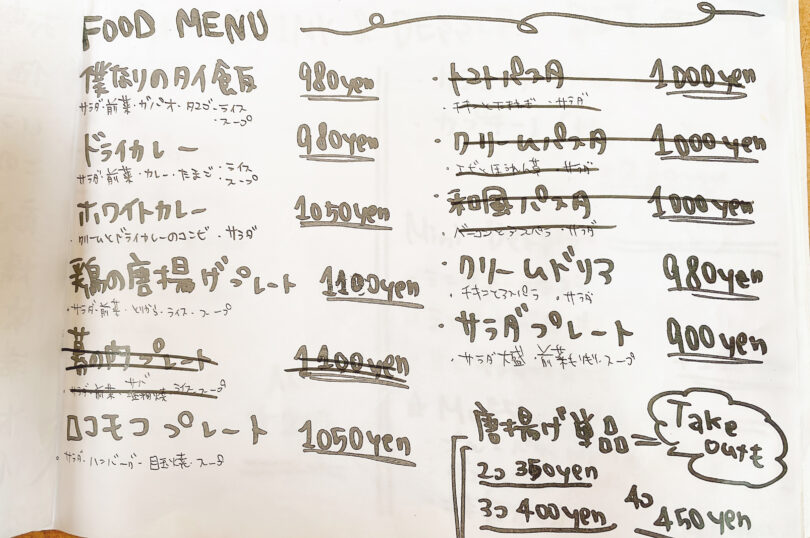 FOOD MENU
僕なりのタイ飯 980yen
サラダ・前菜・ガパオ・タマゴ・ライス
・スープ
ドライカレー 980yen
サラダ・前菜・カレー・たまご・ライス
・スープ
ホワイトカレー 1050yen
・クリームとドライカレーのコンビ ・サラダ
鶏の唐揚げプレート 1100yen
・サラダ・前菜・とりから・ライス・スープ
幕の内プレート 1100yen
・サラダ・前菜・サバ塩焼・ライス・スープ
ロコモコプレート 1050yen
・サラダ・ハンバーグ・目玉焼・スープ
・トマトパスタ 1000yen
・チキンと玉ねぎ ・サラダ
・クリームパスタ 1000yen
・エビとほうれん草 ・サラダ
・和風パスタ 1000yen
・ベーコンとアスパラ ・サラダ
・クリームドリア 980yen
・チキンとアスパラ ・サラダ
・サラダプレート 900yen
・サラダ大盛 前菜もりもり・スープ
唐揚げ単品 = Take outも
2コ 350yen
3コ 400yen 4コ 450yen